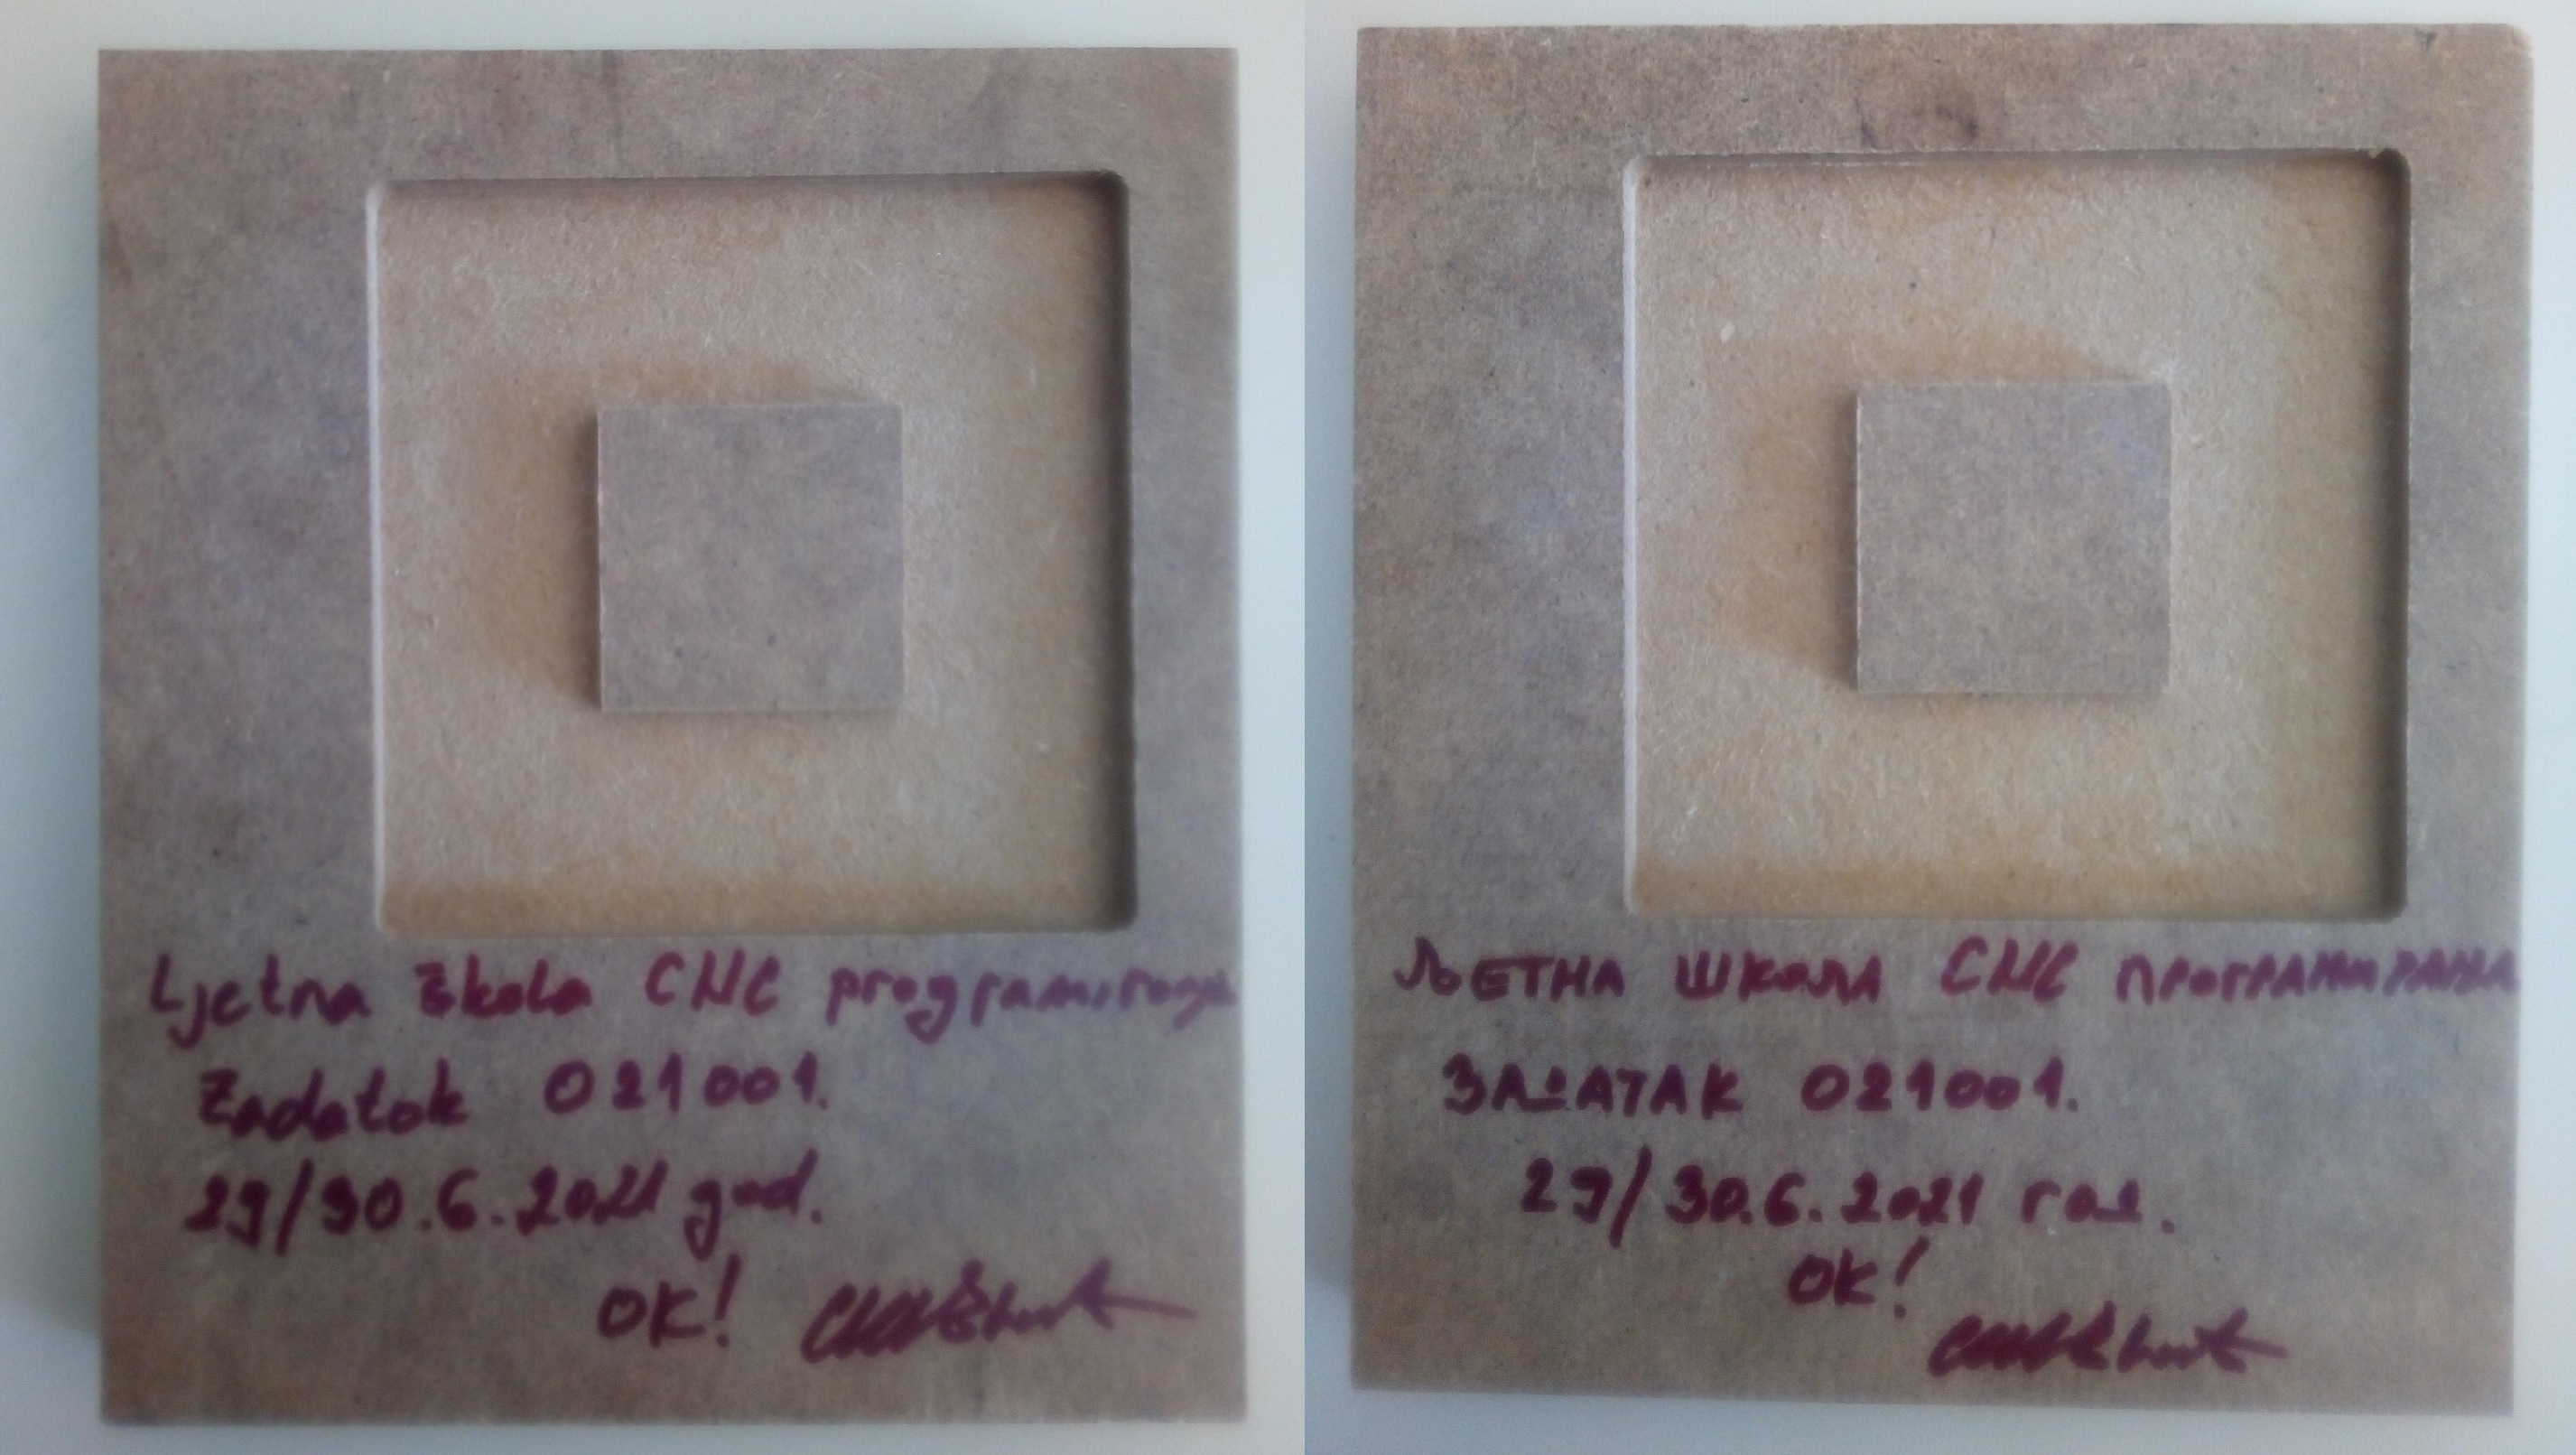 Ljetna škola CNC programiranja
Zadatak 021001.
29/30.6.2021 god.
OK!
ЉЕТНА ШКОЛА CNC ПРОГРАМИРАЊА
ЗАДАТАК 021001.
29/30.6.2021 год.
OK!